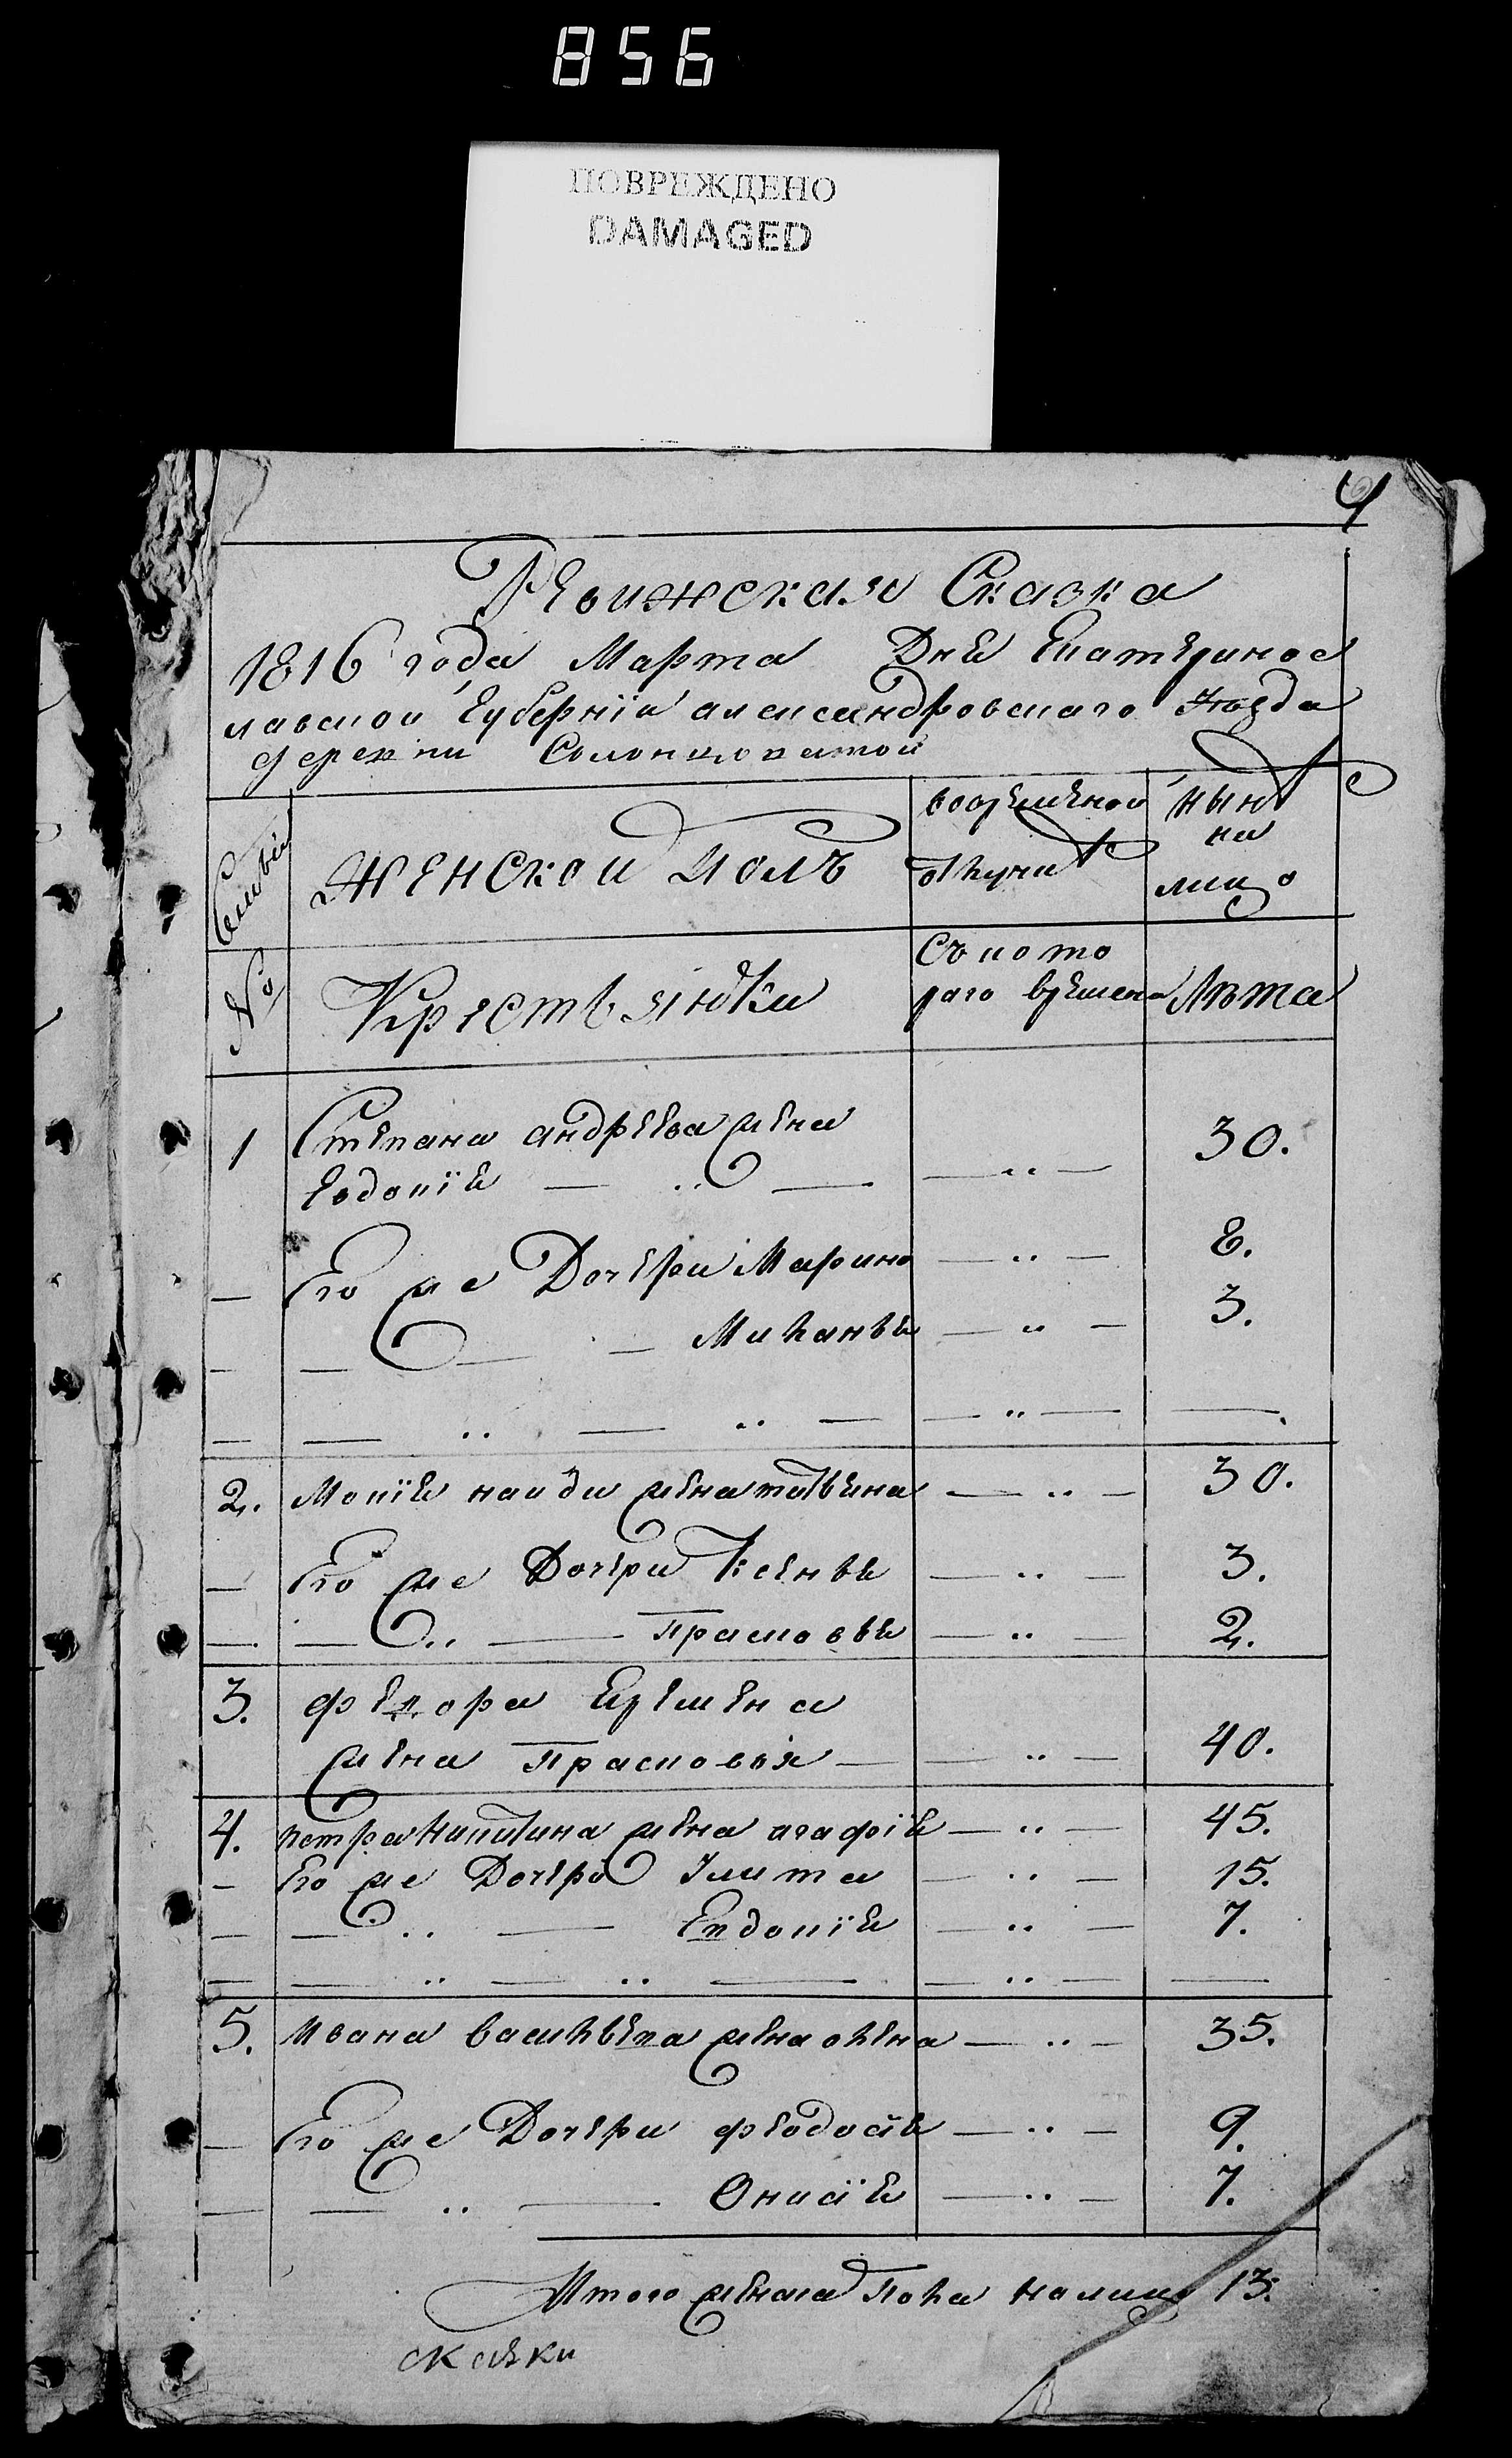 856
ПОВРЕЖДЕНО
DAMAGED
4
Ревижская Сказка
1816 года Марта Дня Екатеринос
лавской Губерніи александровскаго уѣзда
деревни Солонцоватой
Семьи
женской полъ
вовременной
отлучкѣ
нынѣ
на
лицо
№
Крестьянки
Съ кото
раго времени
Лѣта
1 Степана андреева жена
Евдокія — .. — — .. — 30.
— Его же Дочери Марина — .. — 8.
— — — — Миланья — .. — 3.
— — .. — .. — — .. — —.
2. Мокія жена татьяна — .. — 30.
— Его же Дочери Ксенья — .. — 3.
— — .. — Прасковья — .. — 2.
3. федора Еремена
жена Прасковья — — .. — 40.
4. петра Никитина жена агафія — .. — 45.
— Его же Дочери Улита — .. — 15.
— — .. — Евдокія — .. — 7.
— — .. — .. — — .. — —
5. Ивана васильева жена олена — .. — 35.
— Его же Дочери феодосія — .. — 9.
— — .. — Онисія — .. — 7.
Итого женска Пола налицо 13.
скаски